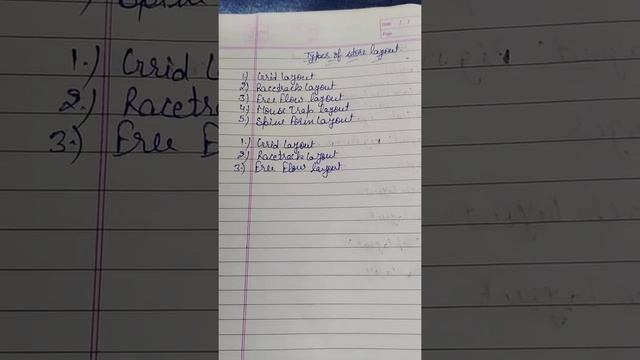 Date: 1 1
Page
Types of store layout
1) Grid Layout
2) Racetrack Layout
3) Free Flow Layout
4) Mouse Trap Layout
5) Spine Form Layout
1.) Grid Layout
2.) Racetrack Layout
3.) Free Flow Layout